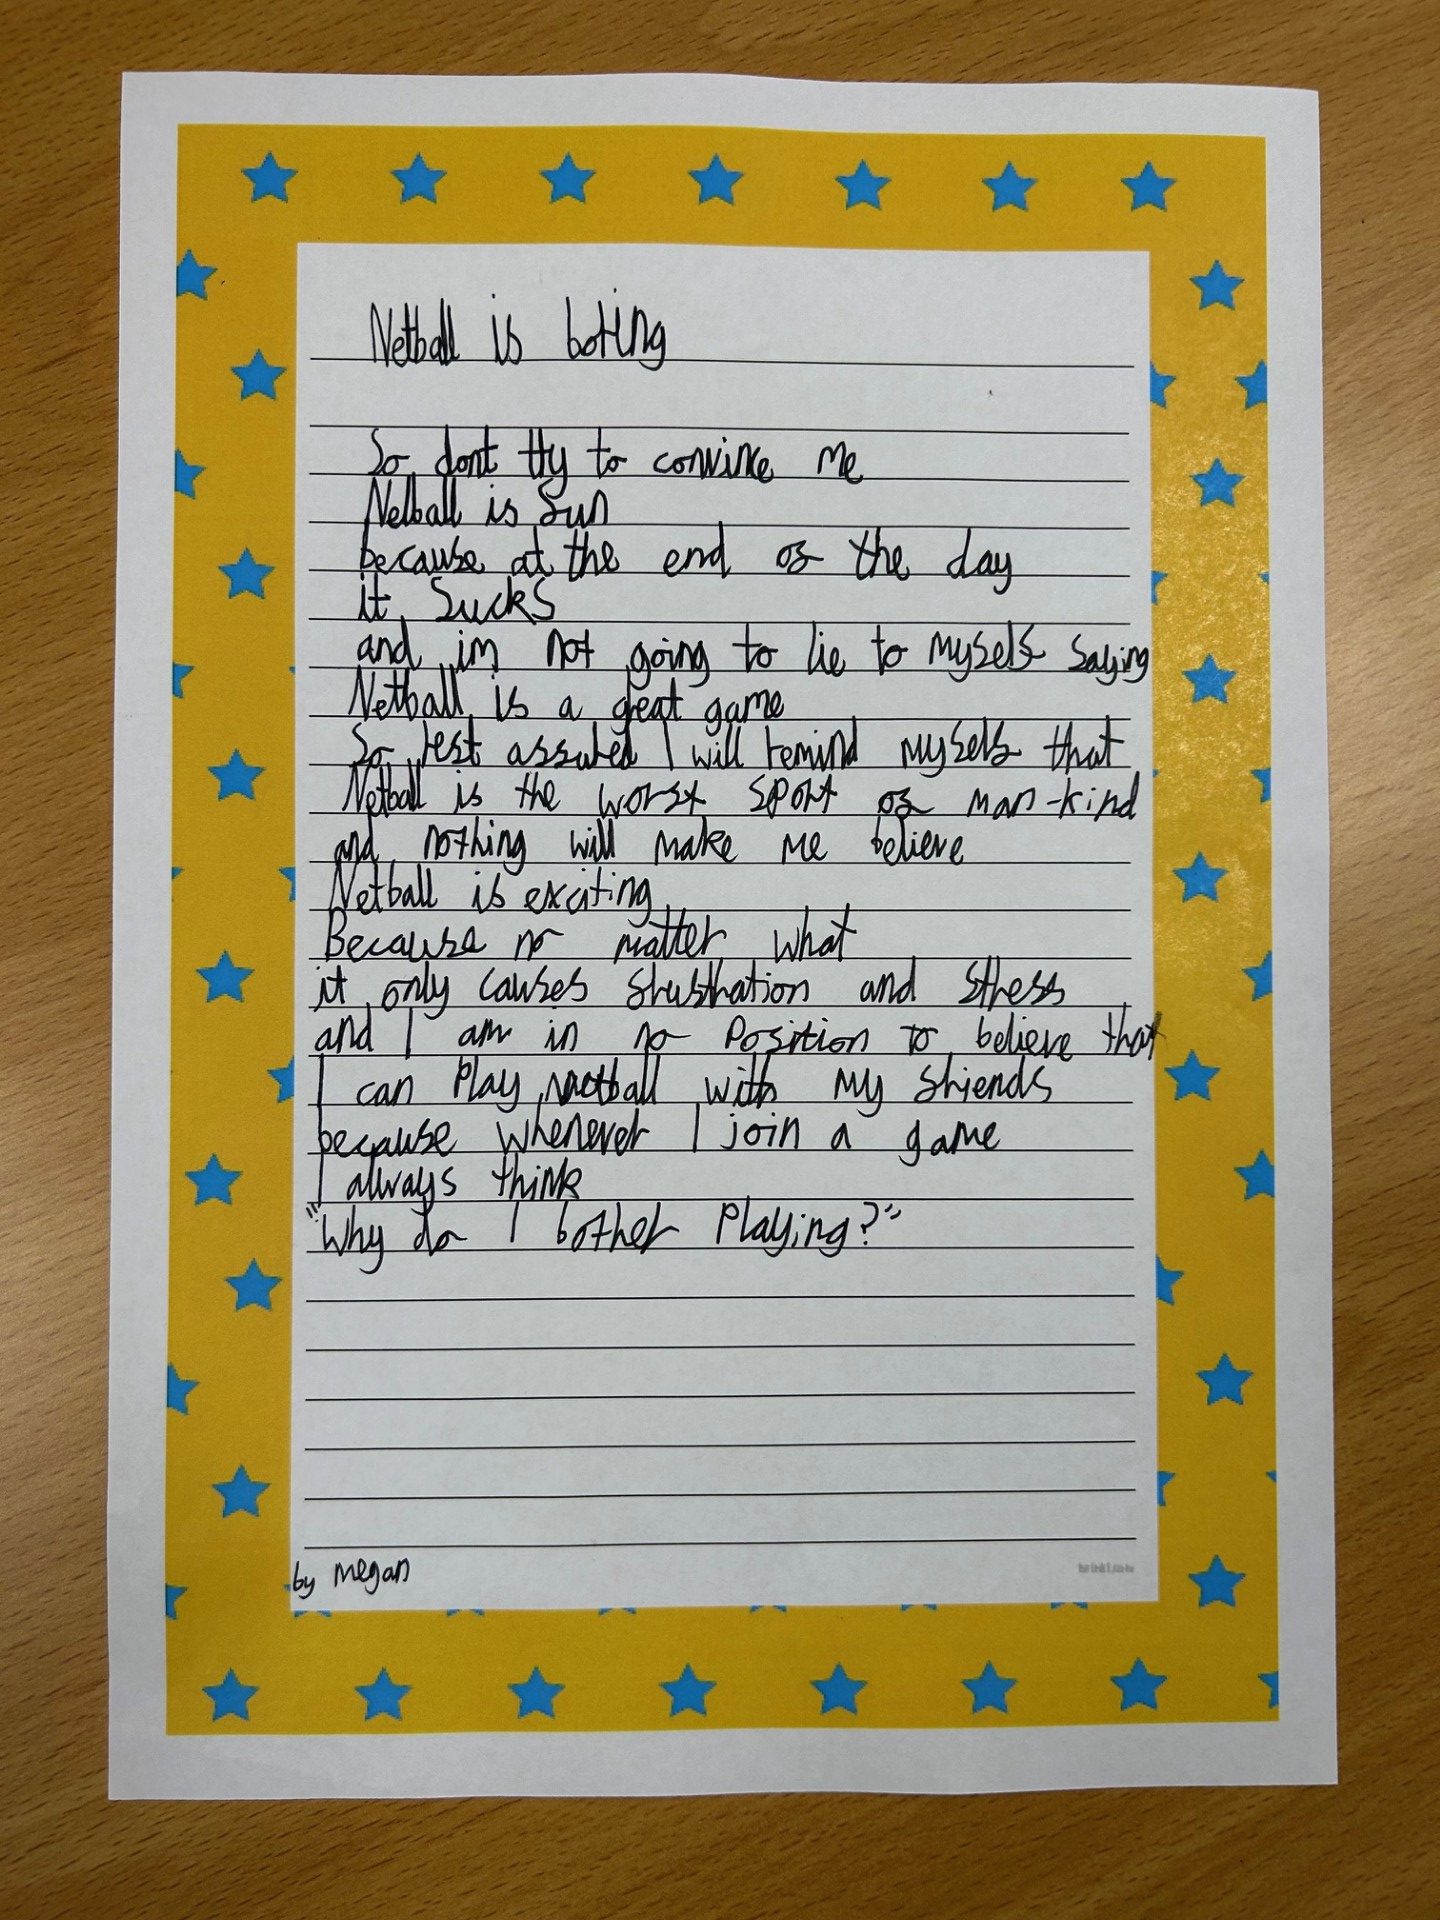 Netball is boring
So dont try to convince me
Netball is fun
because at the end of the day
it sucks
and im not going to lie to myself saying
Netball is a great game
So rest assured I will remind myself that
Netball is the worst sport of man-kind
and nothing will make me believe
Netball is exciting
Because no matter what
it only causes frustration and stress
and I am in no position to believe that
I can play netball with my friends
because whenever I join a game
I always think
"Why do I bother playing?"
by megan